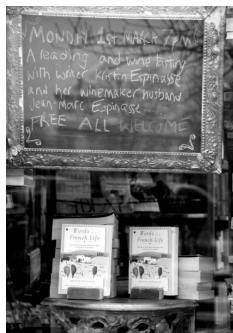 MONDAY 1st MARCH 7PM!
A reading and wine tasting
with writer Kristin Espinasse
and her winemaker husband
Jean-Marc Espinasse
FREE ALL WELCOME
Words in a
French Life
Words in a
French Life